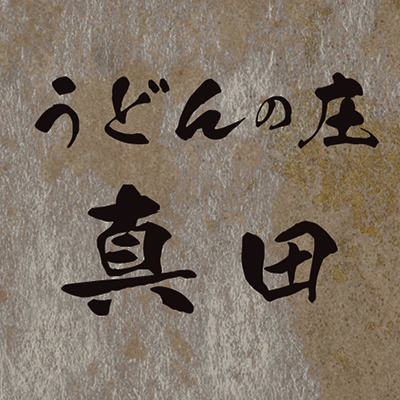 うどんの庄
真田